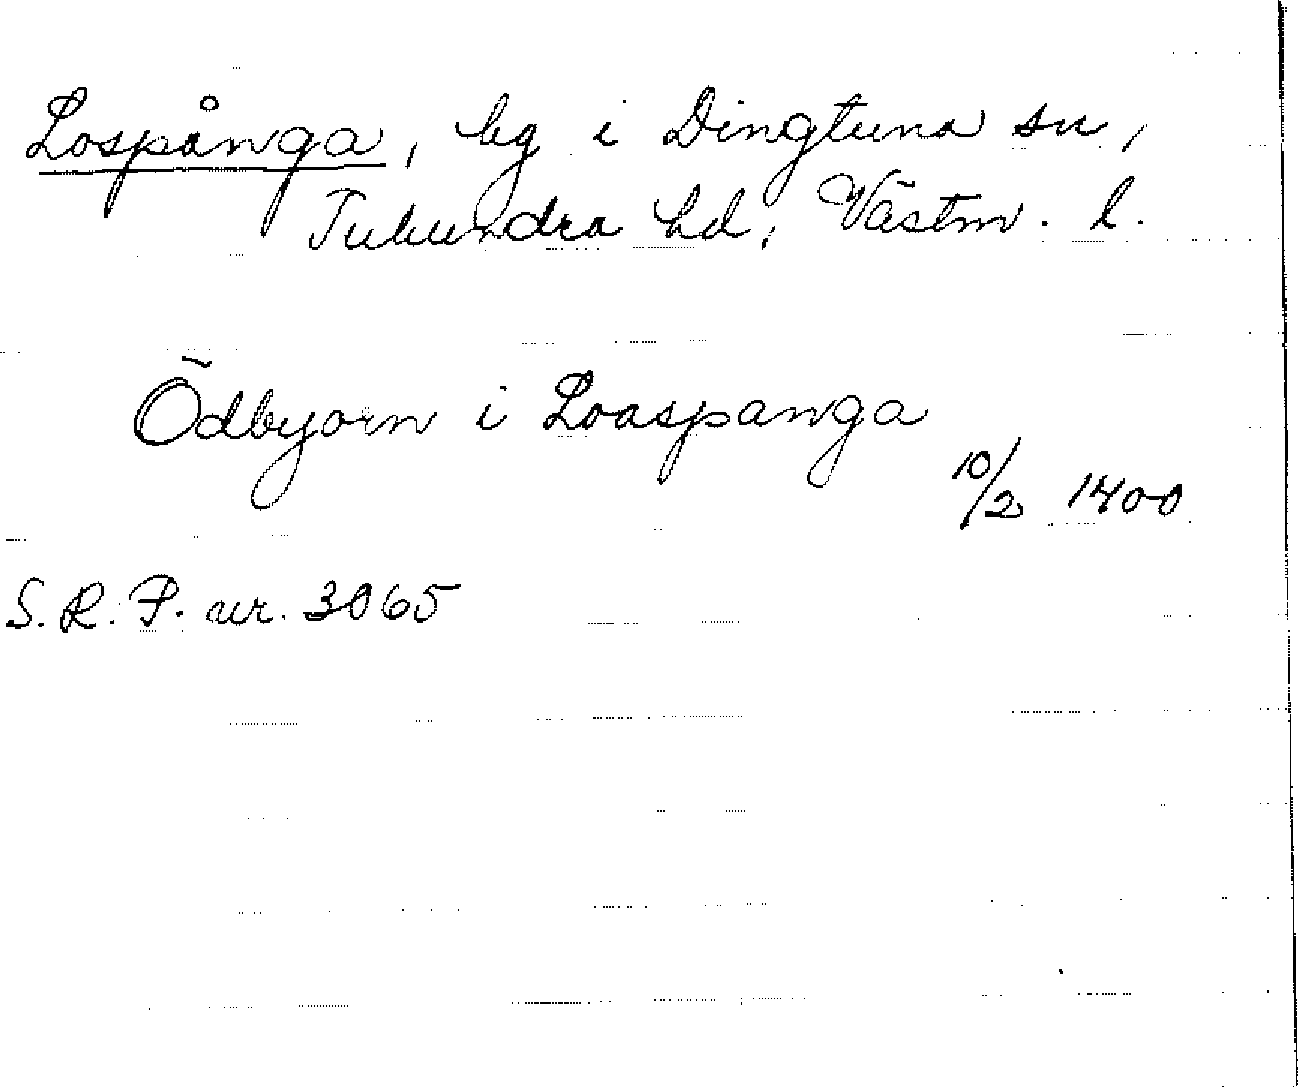 Lospånga, bg i Dingtuna sn,
Tuhundra hd, Västm. l.
Ödbyorn i Loaspanga
10/2 1400
S.R.P. nr. 3065